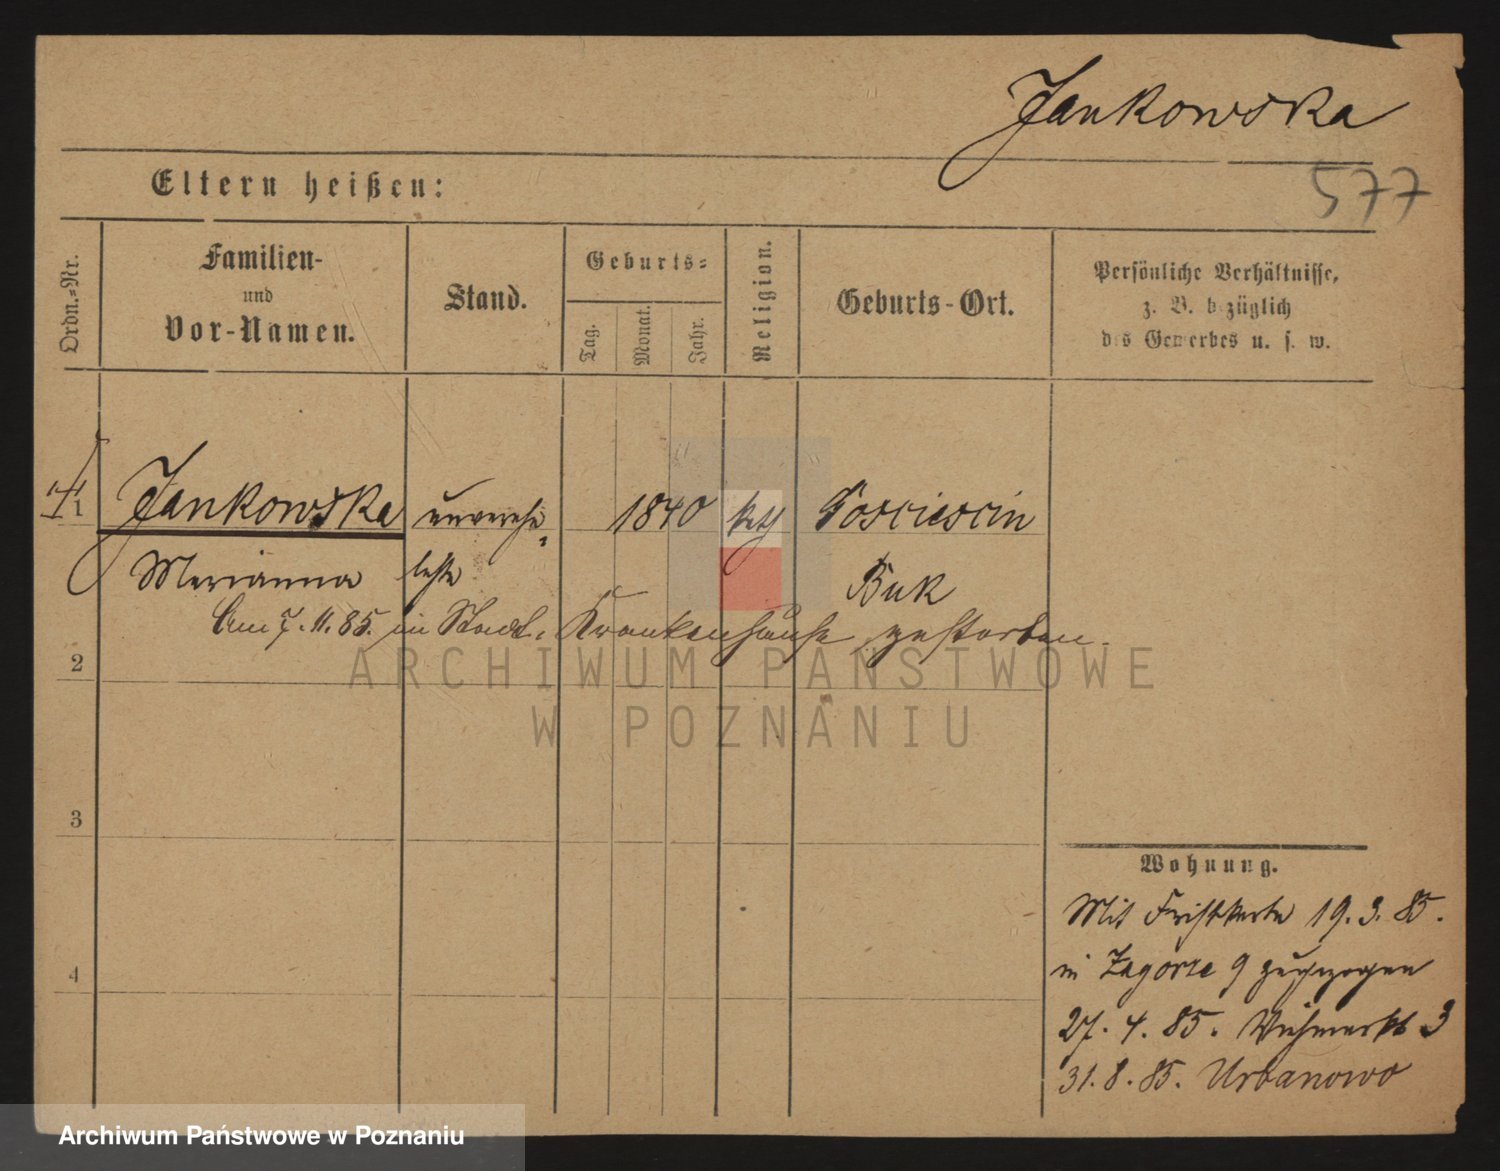 Jankowska
577
Eltern heißen:
Ordn.-Nr.
Familien-
und
Vor-Namen.
Stand.
Geburts-
Tag.
Monat.
Jahr.
Religion.
Geburts-Ort.
Persönliche Verhältnisse,
z. B. bezüglich
des Gewerbes u. s. w.
1 Jankowska unverehe- 1840 kath Posciescin
Marianna lichte Buk
Am 7.11.85. in Stadt. Krankenhause gestorben.
2
ARCHIWUM PAŃSTWOWE
W POZNANIU
3
4
Wohnung.
Mit Fristkarte 19.3.85.
in Zagorze 9 zugezogen
27.4.85. Viehmarkt 3
31.8.85. Urbanowo
Archiwum Państwowe w Poznaniu